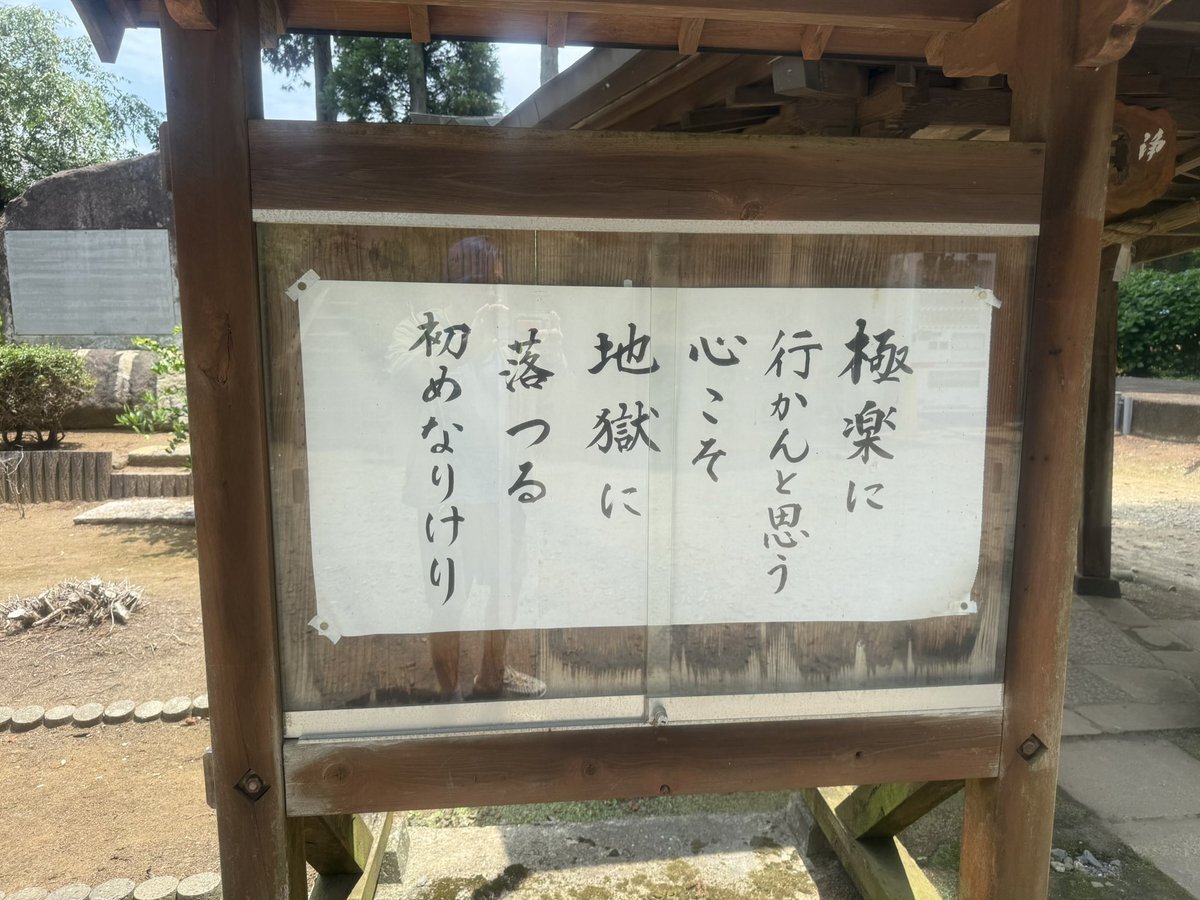 極楽に
行かんと思う
心こそ
地獄に
落つる
初めなりけり
浄